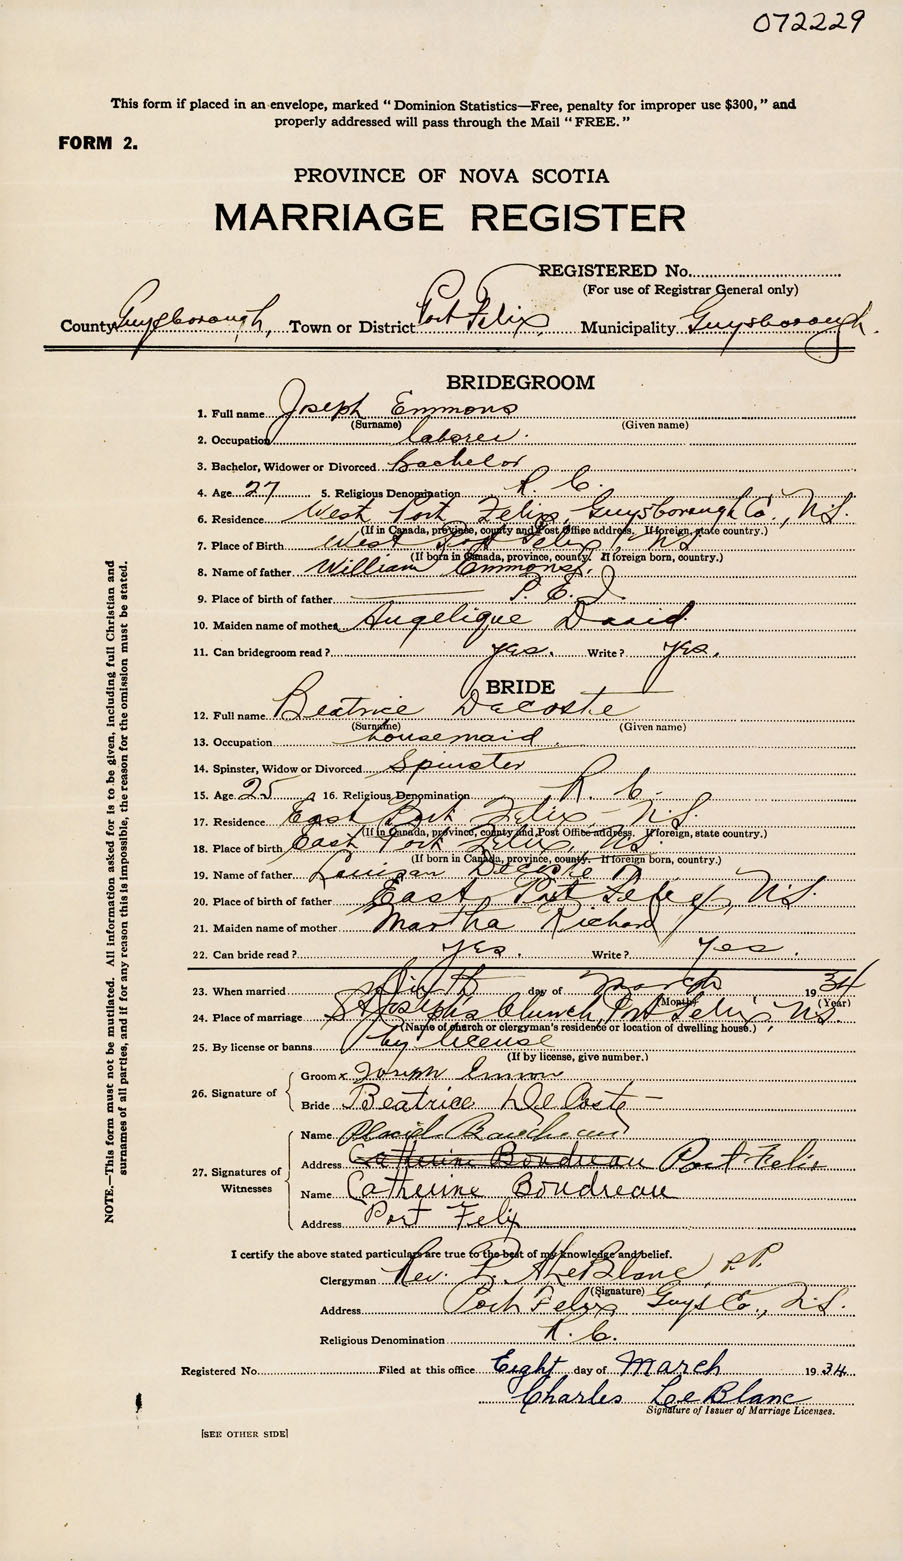 072229
This form if placed in an envelope, marked “ Dominion Statistics—Free, penalty for improper use $300, ” and
properly addressed will pass through the Mail “ FREE. ”
FORM 2.
PROVINCE OF NOVA SCOTIA
MARRIAGE REGISTER
REGISTERED No.
(For use of Registrar General only)
County Guysborough, Town or District Port Felix, Municipality Guysborough.
BRIDEGROOM
1. Full name Joseph Emmons
(Surname) (Given name)
2. Occupation laborer.
3. Bachelor, Widower or Divorced Bachelor
4. Age 27 5. Religious Denomination R. C.
6. Residence West Port Felix, Guysborough Co., N.S.
(If in Canada, province, county and Post Office address. If foreign, state country.)
7. Place of Birth West Port Felix, N.S.
(If born in Canada, province, county. If foreign born, country.)
8. Name of father William Emmons,
9. Place of birth of father P. E. I.
10. Maiden name of mother Angelique David
11. Can bridegroom read ? yes. Write ? yes.
BRIDE
12. Full name Beatrice DeCoste
(Surname) (Given name)
13. Occupation housemaid.
14. Spinster, Widow or Divorced Spinster
15. Age 25 16. Religious Denomination R. C.
17. Residence East Port Felix, N.S.
(If in Canada, province, county and Post Office address. If foreign, state country.)
18. Place of birth East Port Felix, N.S.
(If born in Canada, province, county. If foreign born, country.)
19. Name of father Decoste
20. Place of birth of father East Port Felix, N.S.
21. Maiden name of mother Martha Richard
22. Can bride read ? yes. Write ? yes.
23. When married day of March 1934
(Month) (Year)
24. Place of marriage St Joseph's Church, Port Felix, N.S.
(Name of church or clergyman's residence or location of dwelling house.)
25. By license or banns by license
(If by license, give number.)
26. Signature of
Groom x Joseph Emmon
Bride Beatrice DeCoste
27. Signatures of Witnesses
Name Placid Boudreau
Address Catherine Boudreau Port Felix
Name Catherine Boudreau
Address Port Felix
I certify the above stated particulars are true to the best of my knowledge and belief.
Clergyman Rev. LeBlanc P.P.
(Signature)
Address Port Felix Guys Co., N.S.
Religious Denomination R. C.
Registered No. Filed at this office Eight day of March 1934
Charles LeBlanc
Signature of Issuer of Marriage Licenses.
[SEE OTHER SIDE]
NOTE.—This form must not be mutilated. All information asked for is to be given, including full Christian and
surnames of all parties, and if for any reason this is impossible, the reason for the omission must be stated.